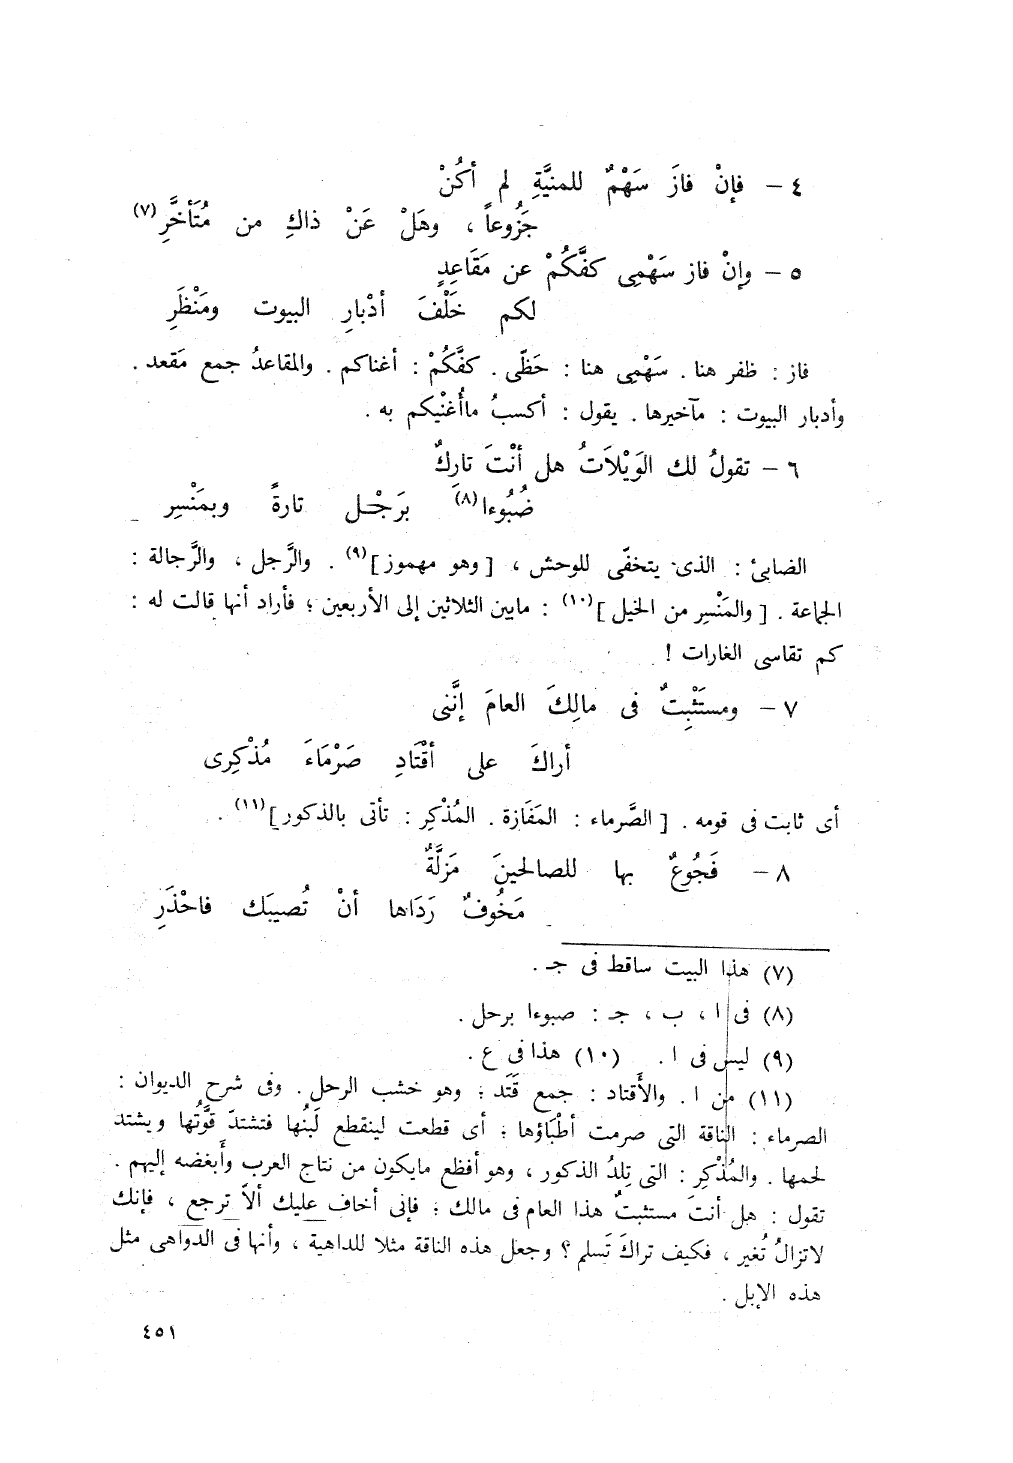 ٤ – فإنْ فازَ سَهْمٌ للمنيَّةِ لم أكُنْ
جَزُوعاً ، وهَلْ عَنْ ذاكِ من مُتَأخَّرِ (٧)
٥ – وإنْ فاز سَهْمِى كفَّكُمْ عن مَقَاعِدٍ
لكم خَلْفَ أدْبارِ البيوت ومَنْظَرِ
فاز : ظفر هنا . سَهْمِى هنا : حَظّى . كفَّكُمْ : أغناكم . والمقاعدُ جمع مَقعد .
وأدبار البيوت : مآخيرها . يقول : أكسبُ ماأُغنْيكم به .
٦ – تقولُ لك الوَيْلاَتُ هل أنْتَ تارِكٌ
ضُبُوءا (٨) بَرَجْـل تارةً وبمَنْسِر
الضابئ : الذى يتخفّى للوحش ، [ وهو مهموز ] (٩) . والرَّجل ، والرَّجالة :
الجماعة . [ والمَنْسِر من الخيل ] (١٠) : مابين الثلاثين إلى الأربعين ؛ فأراد أنها قالت له :
كم تقاسى الغارات !
٧ – ومستَثْبِتٌ فى مالِكَ العامَ إنَّنى
أراكَ على أقْتَادِ صَرْمَاءَ مُذْكِرِى
أى ثابت فى قومه . [ الصَّرماء : المَفَازة . المُذْكِر : تأتى بالذكور ] (١١) .
٨ – فَجُوعٌ بها للصالحينَ مَزلَّةٌ
مَخُوفٌ رَدَاها أنْ تُصيبَك فاحْذَرِ
(٧) هذا البيت ساقط فى جـ .
(٨) فى ا ، ب ، جـ : صبوءا برحل .
(٩) ليس فى ا . (١٠) هذا فى ع .
(١١) من ا . والأَقتاد : جمع قَتَد ؛ وهو خشب الرحل . وفى شرح الديوان :
الصرماء : الناقة التى صرمت أطْبَاؤها ؛ أى قطعت لينقطع لَبنُها فتشتدّ قوَّتُها ويشتد
لحمها . والمُذْكِر : التى تِلدُ الذكور ، وهو أفظع مايكون من نتاج العرب وأَبغضه إليهم .
تقول : هل أنتَ مستثبتٌ هذا العام فى مالك ؛ فإنى أخاف عليك ألاّ ترجع ، فإنك
لاتزالُ تُغير ، فكيف تراكَ تَسلم ؟ وجعل هذه الناقة مثلا للداهية ، وأنها فى الدواهى مثل
هذه الإبل .
٤٥١